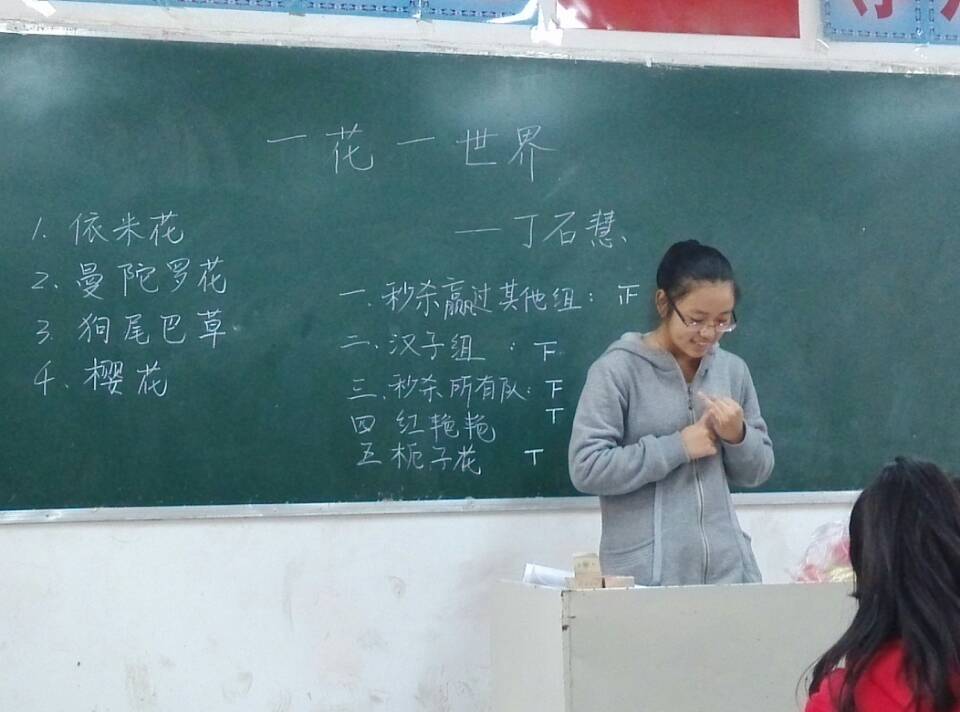 一花一世界
——丁石慧
1. 依米花
2. 曼陀罗花
3. 狗尾巴草
4. 樱花
一.秒杀赢过其他组：正
二.汉子组：下
三.秒杀所有队：下
四 红艳艳 丅
五 栀子花 丅